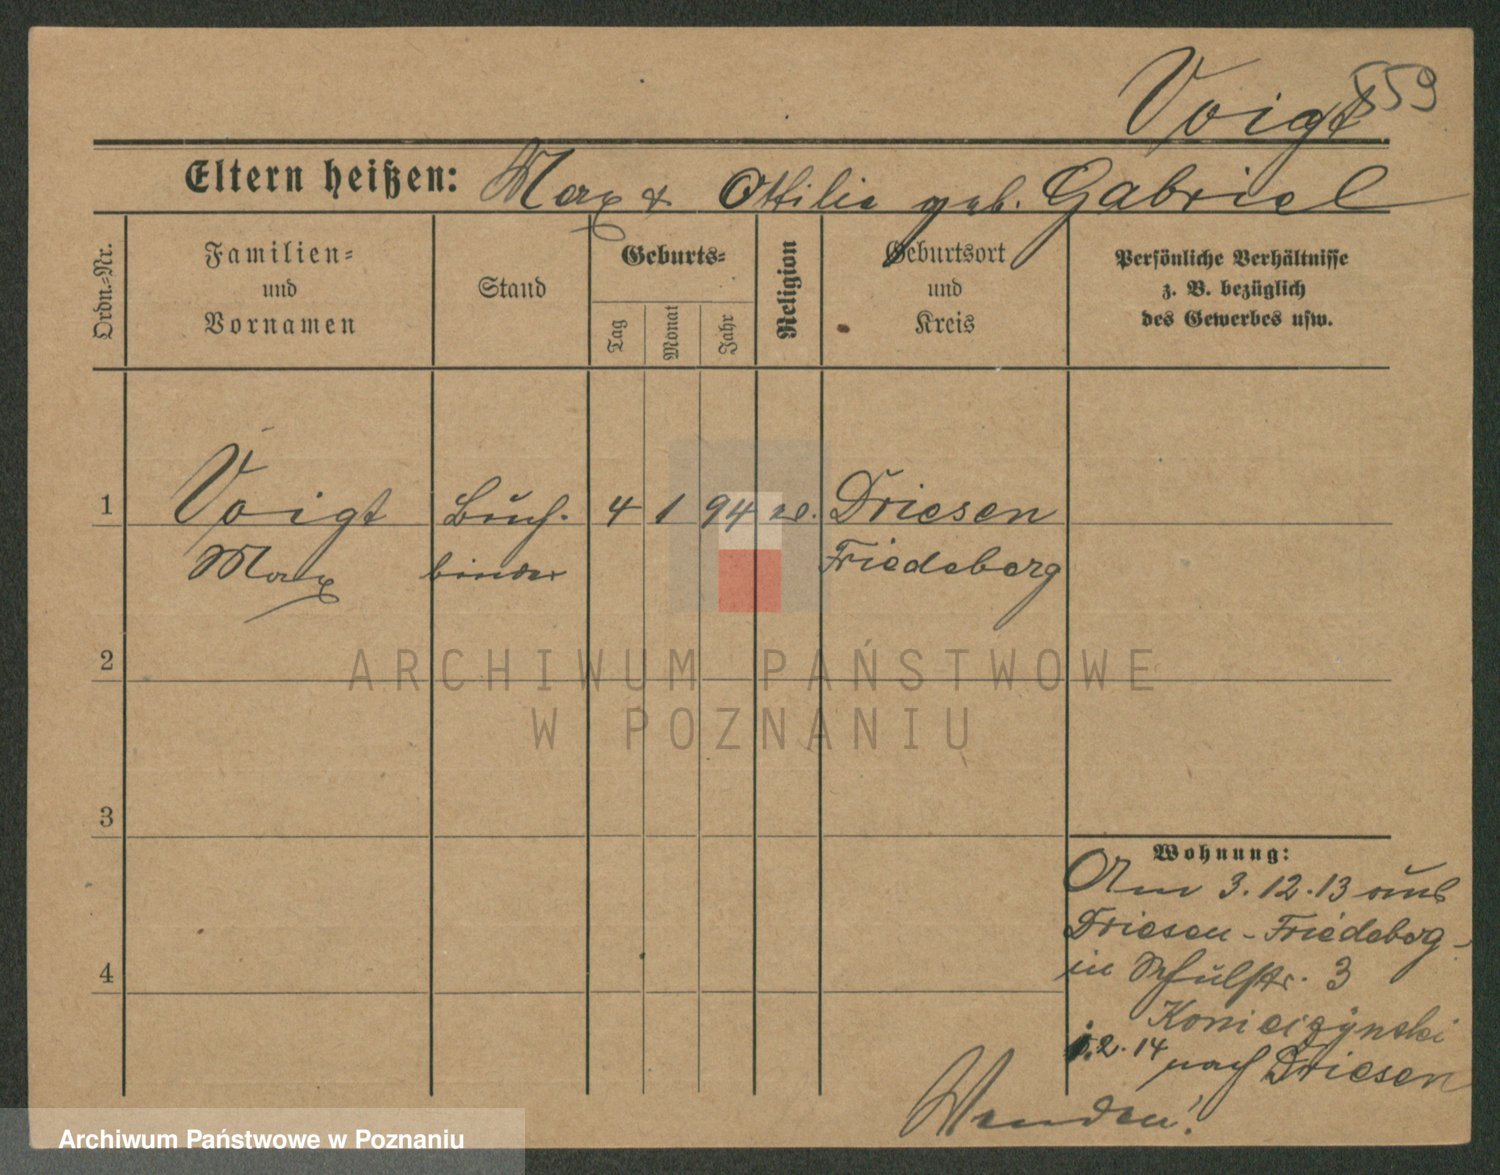 Voigt 559
Eltern heißen: Max & Ottilie geb. Gabriel
Ordn.-Nr.
Familien-
und
Vornamen
Stand
Geburts-
Tag
Monat
Jahr
Religion
Geburtsort
und
Kreis
Persönliche Verhältnisse
z. B. bezüglich
des Gewerbes usw.
1 Voigt Buch- 4 1 94 ev. Driesen
Max binder Friedeberg
2
ARCHIWUM PAŃSTWOWE
W POZNANIU
3
Wohnung:
Am 3.12.13 aus
Driesen-Friedeberg
in Schulstr. 3
4
.2.14 nach Driesen
Wenden!
Archiwum Państwowe w Poznaniu